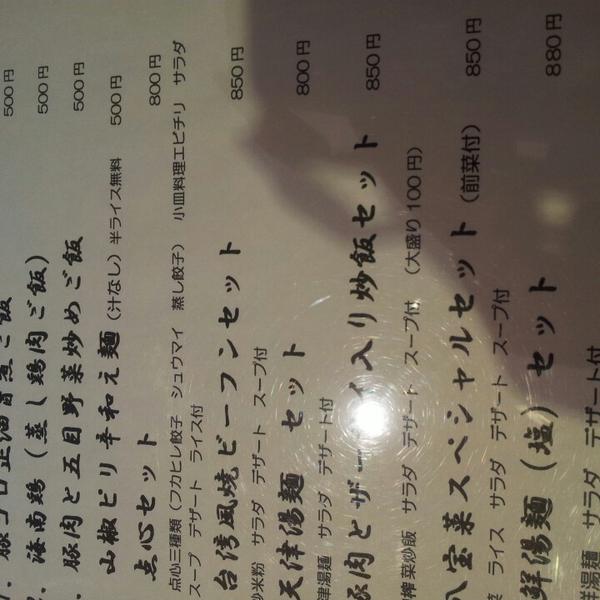 豚コロ正油旨煮ご飯 500円
海南鶏（蒸し鶏肉ご飯） 500円
豚肉と五目野菜炒めご飯 500円
山椒ピリ辛和え麺（汁なし）半ライス無料 500円
点心セット 800円
点心三種類（フカヒレ餃子 シュウマイ 蒸し餃子） 小皿料理エビチリ サラダ
スープ デザート ライス付
台湾風焼ビーフンセット 850円
炒米粉 サラダ デザート スープ付
天津湯麺 セット 800円
津湯麺 サラダ デザート付
豚肉とザーサイ入り炒飯セット 850円
榨菜炒飯 サラダ デザート スープ付 （大盛り100円）
八宝菜スペシャルセット（前菜付） 850円
菜 ライス サラダ デザート スープ付
鮮湯麺（塩）セット 880円
鮮湯麺 サラダ デザート付